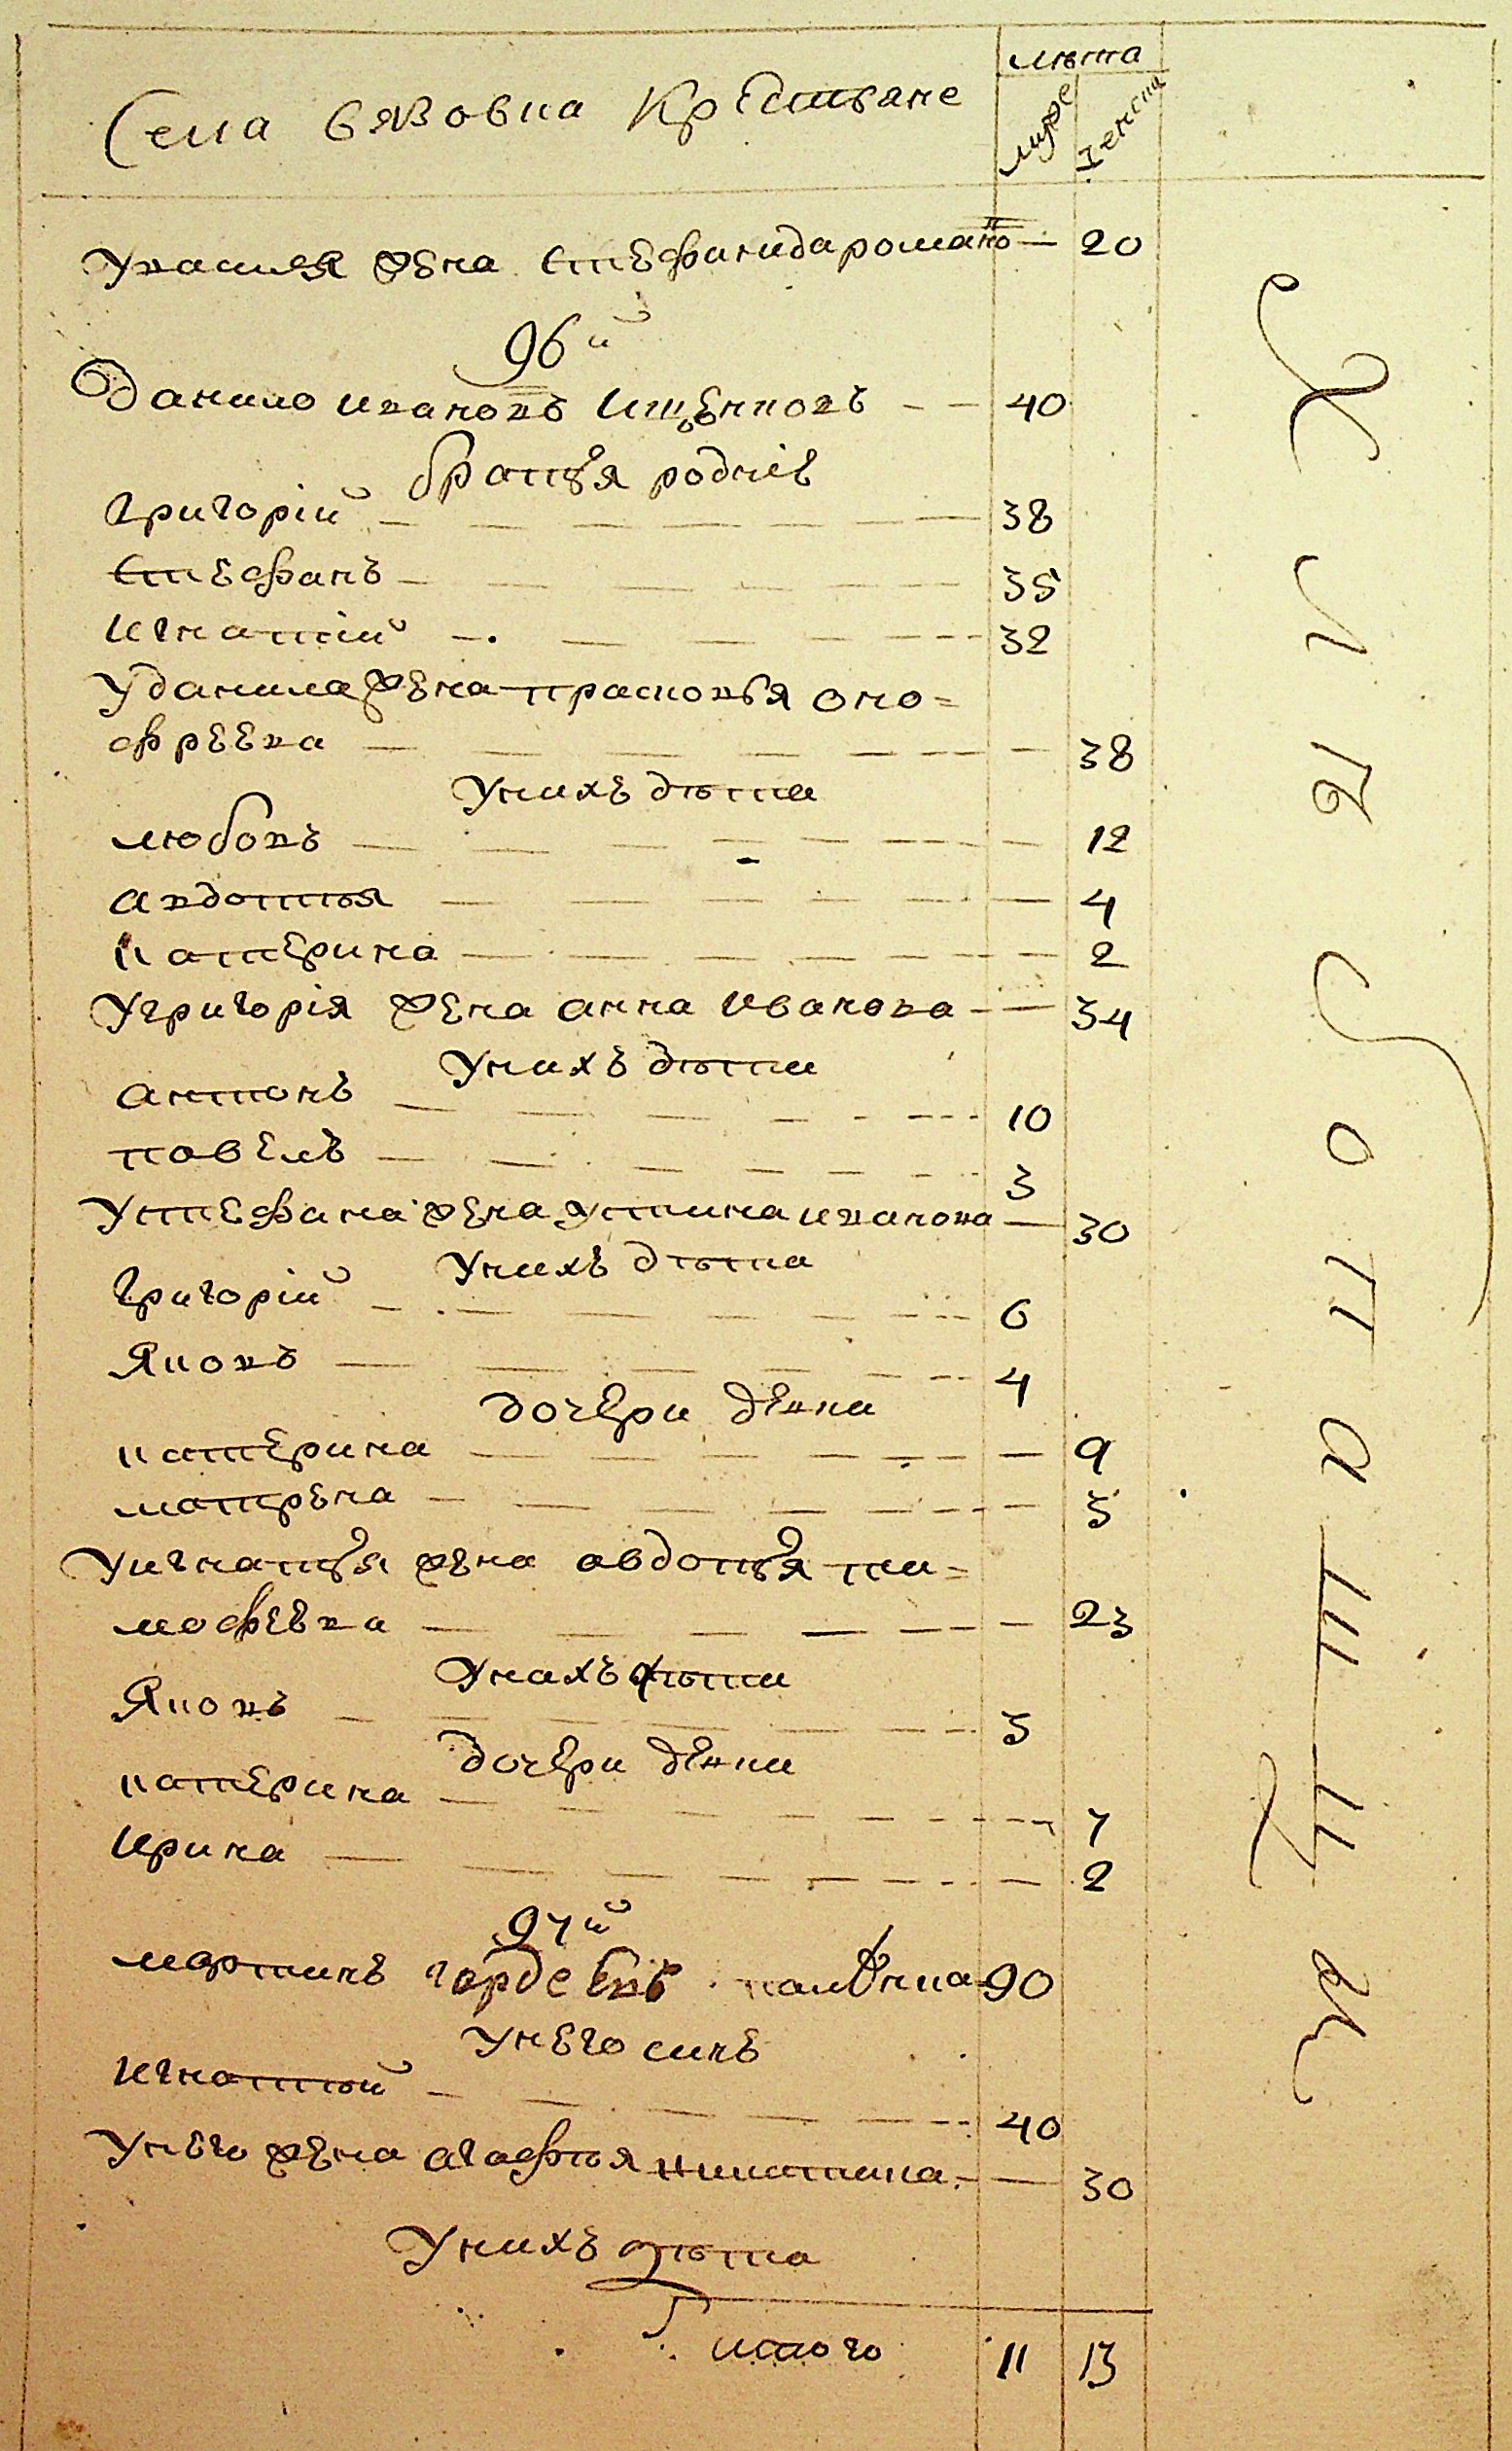 лѣта
Села Вязовка Крестьяне
муже
женска
У василя жена Стефанида романо — 20
96й
Данило ивановъ Ищенковъ — — 40
братья родніе
Григорій — 38
Стефанъ — 35
Игнатій — 32
У данила жена прасковья оно=
фреева — 38
У нихъ дѣти
любовь — 12
авдотья — 4
катерина — 2
У григорія жена анна Иванова — 34
У нихъ дѣти
антонъ — 10
павелъ — 3
У стефана жена устина иванова — 30
У нихъ дѣти
Григорій — 6
Яковъ — 4
дочери девки
катерина — 9
матрена — 5
У игнатья жена авдотья ти=
мофеева — 23
У нихъ дѣти
Яковъ — 5
дочери девки
катерина — 7
Ирина — 2
97й
мартинъ гордеевъ 90
У него синъ
Игнатьй — 40
У него жена агафья никитина — 30
У нихъ дѣти
итого 11 13